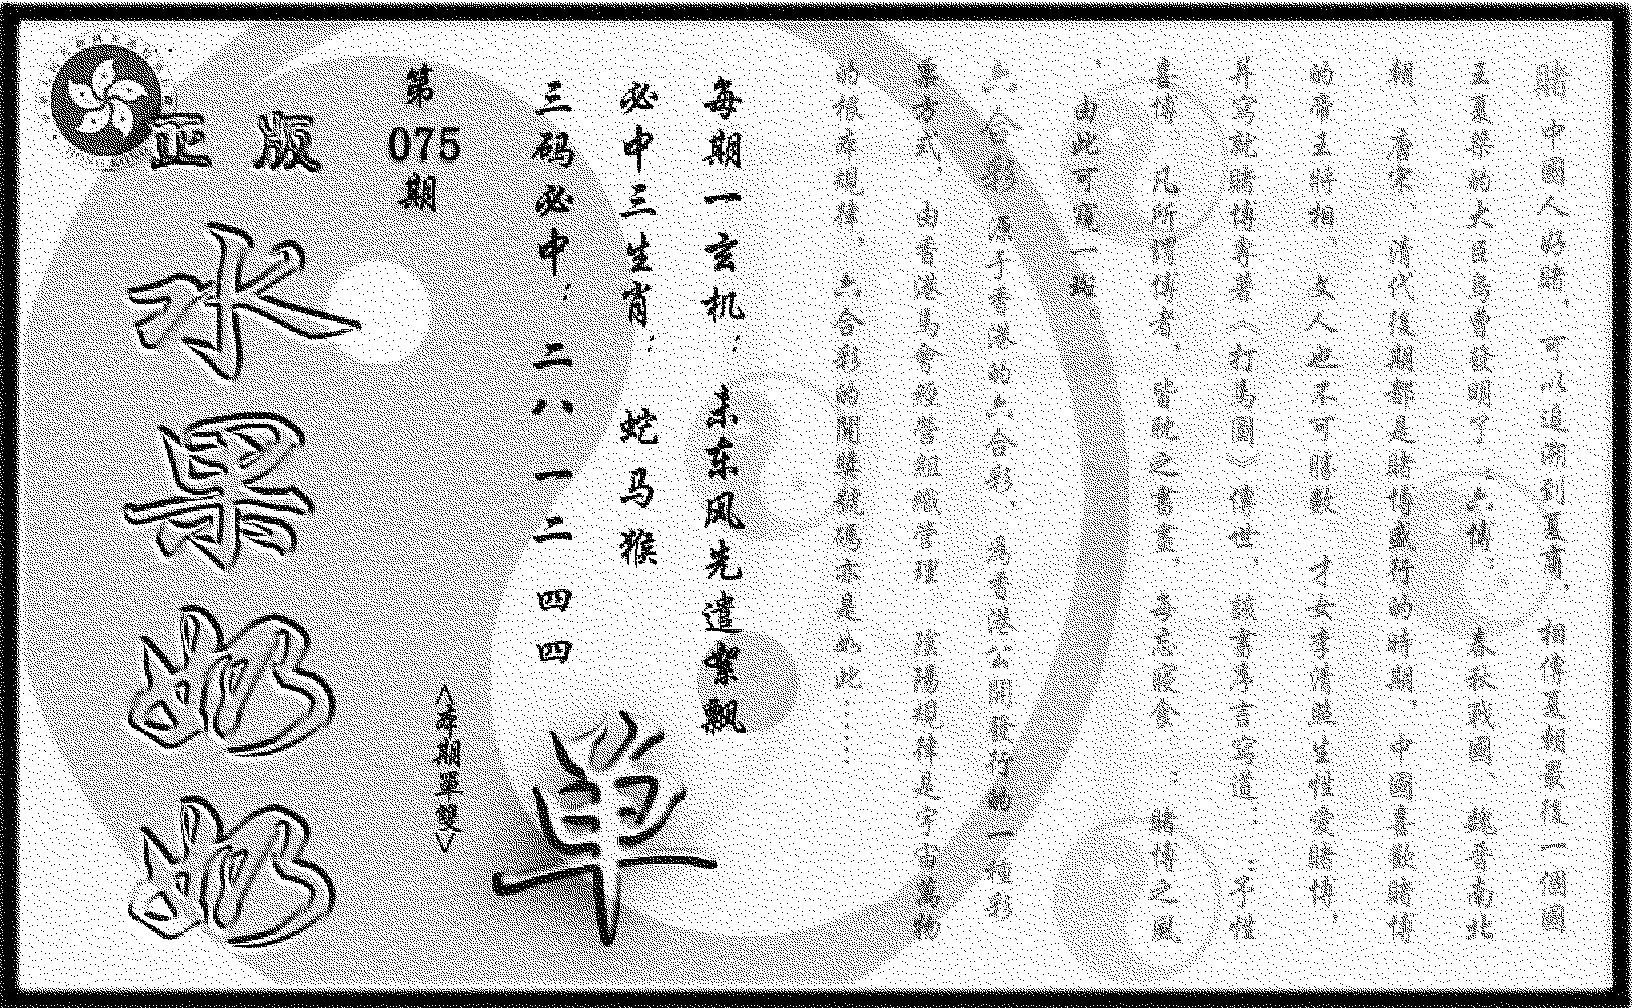 賭 中國人好賭，可以追溯到夏商，相傳夏朝最後一個國
王夏桀的大臣烏曹發明了“六博”，春秋戰國，魏晉南北
朝 唐宋 清代後期都是賭博盛行的時期，中國喜歡賭博
的帝王將相 文人也不可勝數 才女李清照生性愛賭博，
并寫就賭博專著〈打馬圖〉傳世，該書序言寫道：：予性
喜博 凡所謂博者，皆耽之書畫，每忘寢食 ：賭博之風
，由此可窺一斑
六合彩 源于香港的六合彩，為香港公開發行的一種彩
票方式，由香港馬會經營組織管理 陰陽規律是宇宙萬物
的根本規律，六合彩的開獎號碼亦是如此……
每期一玄机：未东风先遣絮飘
必中三生肖：蛇马猴
三码必中：二八 一二 四四
单
第
075
期
〈本期單雙〉
正版
水果奶奶